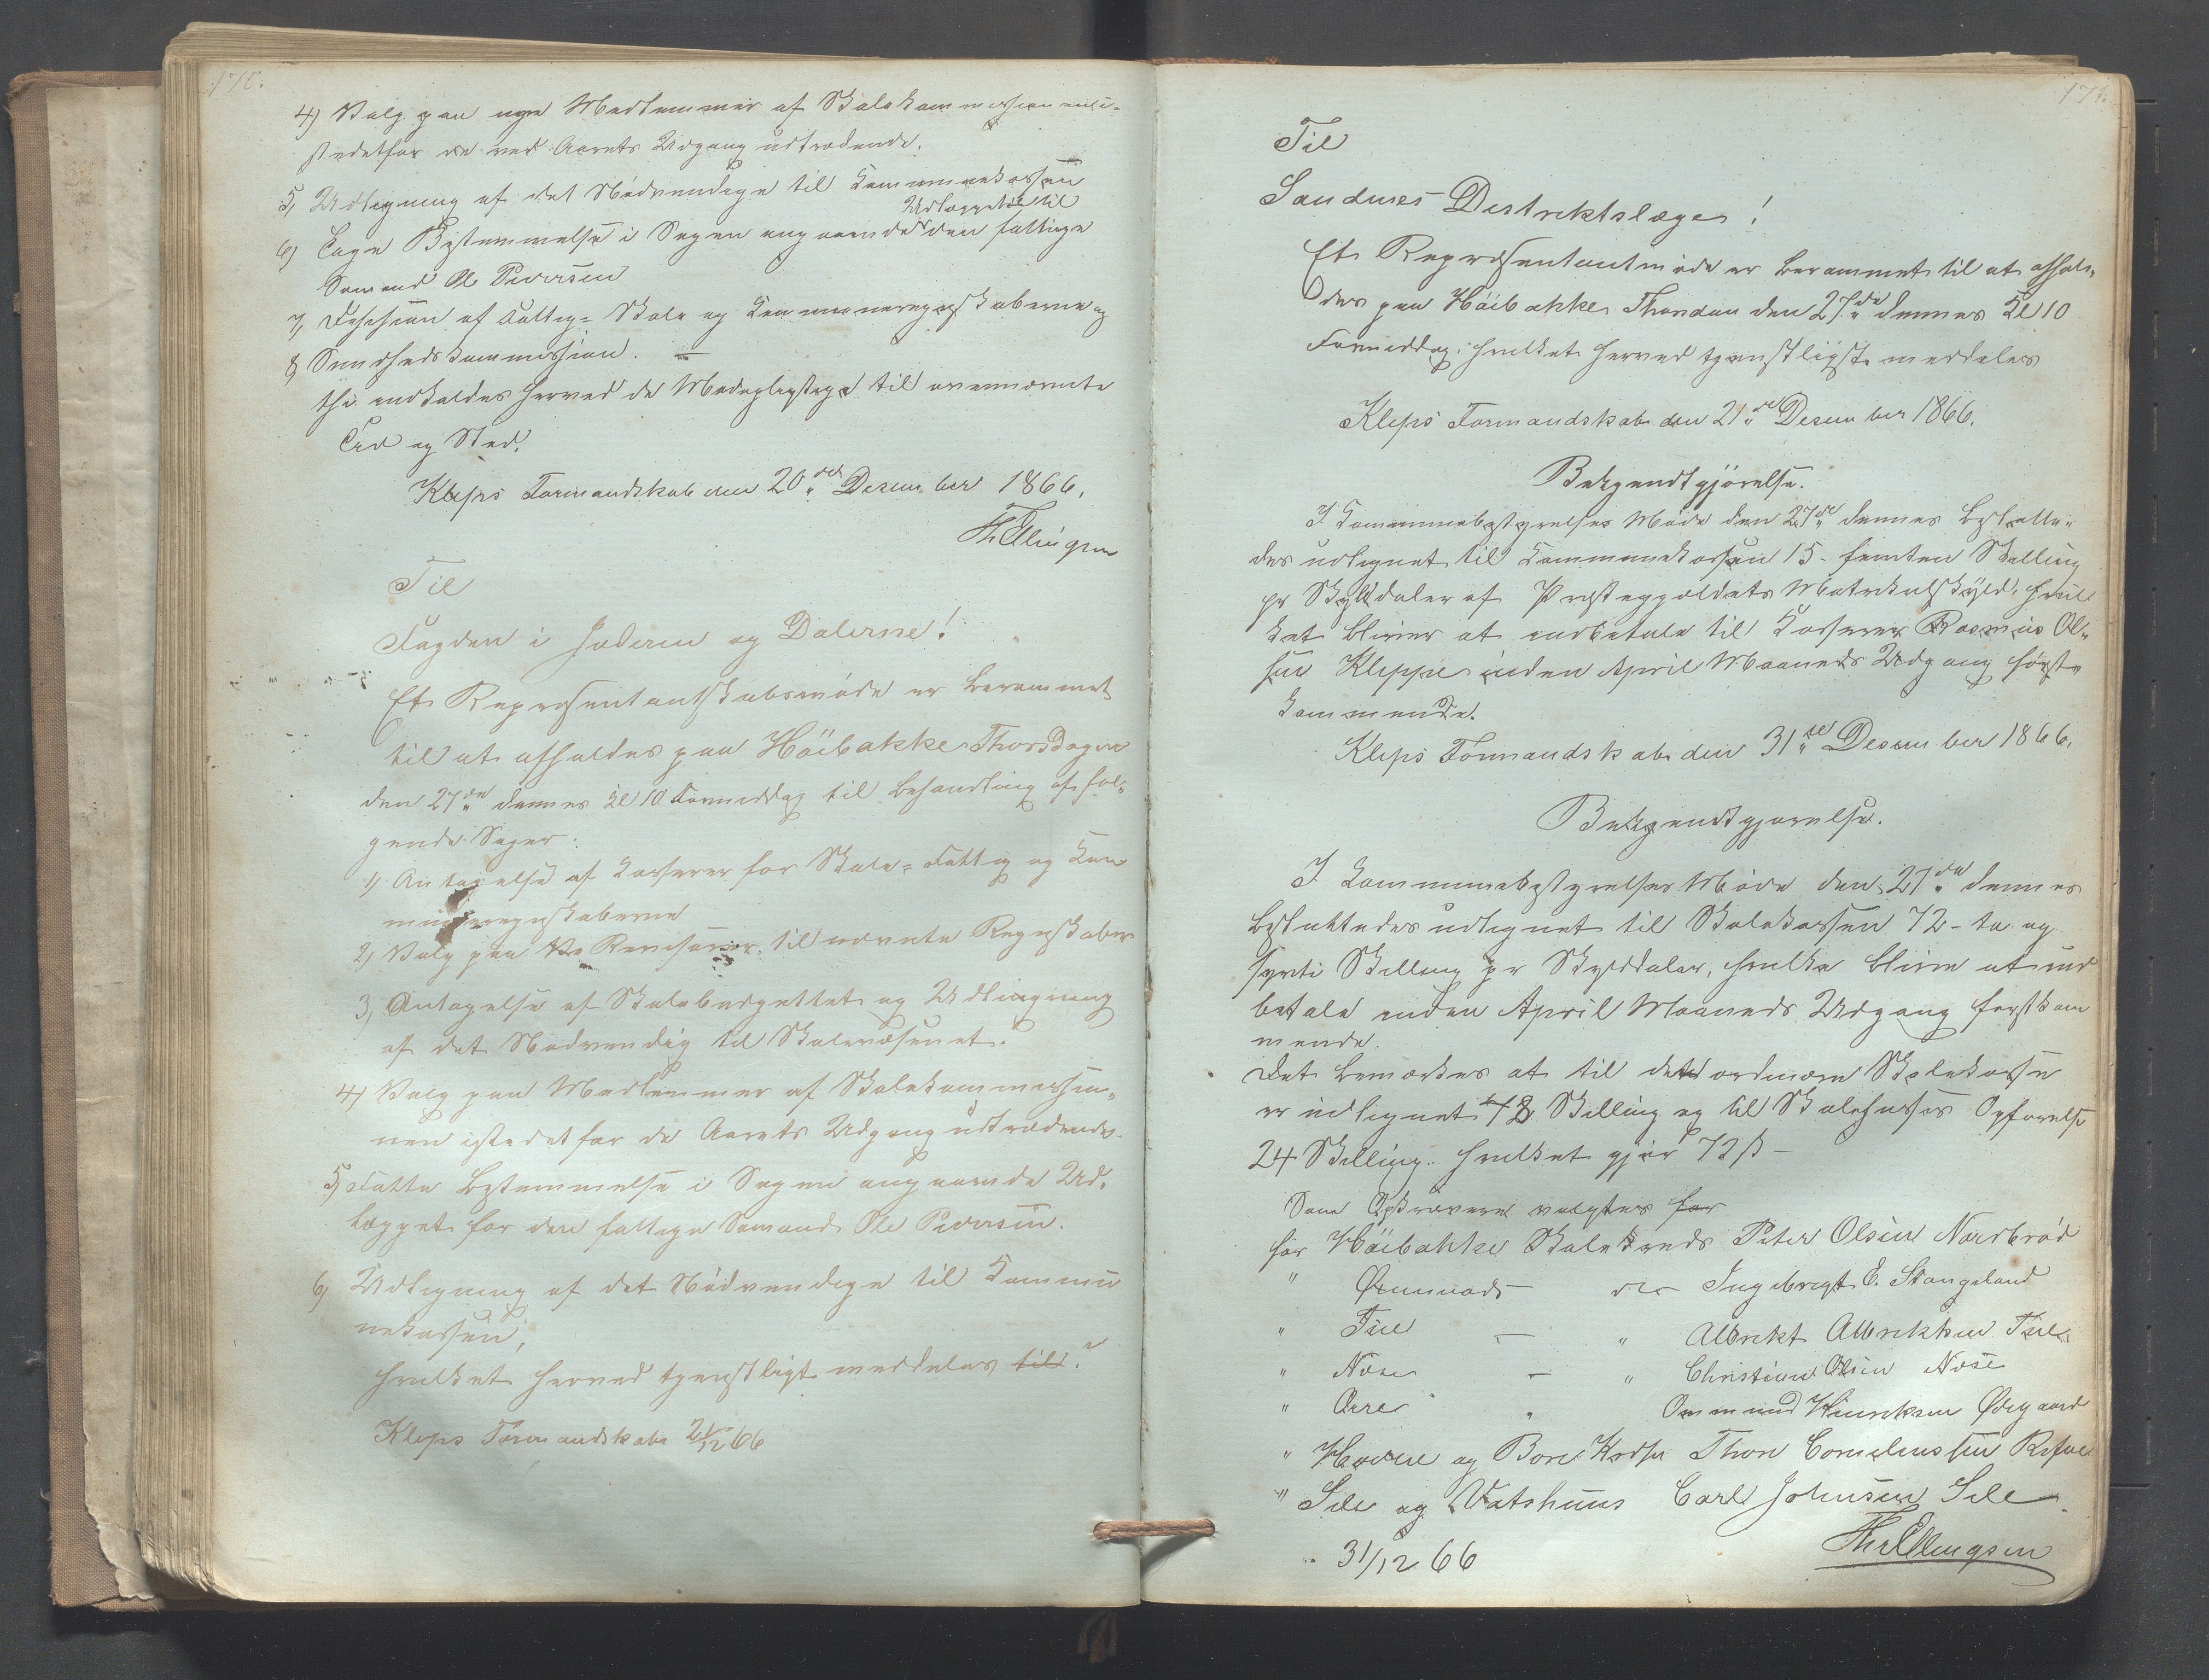 170.
4) Valg paa nye Medlemmer af Skolekommissionen i-
stedetfor de ved Aarets Udgang udtrædende.
5, Udligning af det Nödvendige til Kommunekassen
Udlægget til
6) Tage Bestemmelse i Sagen angaaende den fattige
Sömand Ole Pedersen
7, Desision af Fattig- Skole og Kommuneregnskaberne og
8, Sundhedskommission. —
thi indkaldes herved de Mödepligtige til ovennævnte
Tid og Sted.
Kleps Formandskab den 20de Desember 1866.
Th Ellingsen
Til
Fogden i Jæderen og Dalerne!
Et Repræsentantskabsmöde er berammet
til at afholdes paa Höibakke Thorsdagen
den 27de dennes Kl 10 Formiddag til Behandling af föl-
gende Sager:
1) Antagelse af Kasserer for Skole- Fattig og Kom
muneregnskaberne
2) Valg paa Revisorer til nævnte Regnskaber
3, Antagelse af Skolebudgettet og Udligning
af det Nödvendig til Skolevæsenet.
4) Valg paa Medlemmer af Skolekommissio-
nen istedetfor de Aarets Udgang udtrædende.
5) Fatte Bestemmelse i Sagen angaaende Ud-
lægget for den fattige Sömand Ole Pedersen.
6) Udligning af det Nödvendige til Kommu
nekassen,
hvilket herved tjenstligt meddeles til.
Kleps Formandskab 21/12 66
171.
Til
Sandnes Distriktslæge!
Et Repræsentantmöde er berammet til at afhol-
des paa Höibakke Thorsdag den 27de dennes Kl 10
Formiddag, hvilket herved tjenstligst meddeles
Kleps Formandskab den 21de Desember 1866.
Bekjendtgjörelse.
I Kommunebestyrelses Möde den 27de dennes beslutte-
des udlignet til Kommunekassen 15- femten Skilling
pr Skylddaler af Præstegjeldets Matrikulskyld, hvil
ket bliver at indbetale til Kasserer Rasmus Ol-
sen Kleppe inden April Maaneds Udgang först-
kommende.
Kleps Formandskab den 31te Desember 1866.
Bekjendtgjorelse.
I Kommunebestyrelses Möde den 27de dennes
besluttedes udlignet til Skolekassen 72- to og
sytti Skilling pr Skylddaler, hvilke blive at ind
betale inden April Maaneds Udgang förstkom
mende.
Det bemærkes at til det ordinære Skolekasse
er udlignet 48 Skilling og til Skolehuses Opförelse
24 Skilling. hvilket gjör 72 ß —
Som Opkrævere valgtes for
for Höibakke Skolekreds Peter Olsen Nordbröd
" Orunvads — do Ingebregt E. Stangeland
" Tue — " Albrekt Albrektsen Tue
" Næse — " Christian Olsen Næse
" Orre " Ommund Hinriksen Ödegaard
" Hodne og Bore Kredse Thore Corneliussen Refve
" Sele og Vatshuus Carl Johnsen Sele
31/12 66
Th Ellingsen